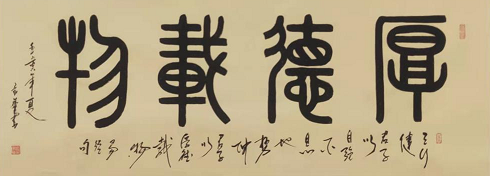 厚德載物
天行健君子以自強不息地勢坤君子以厚德載物易經句
年夏